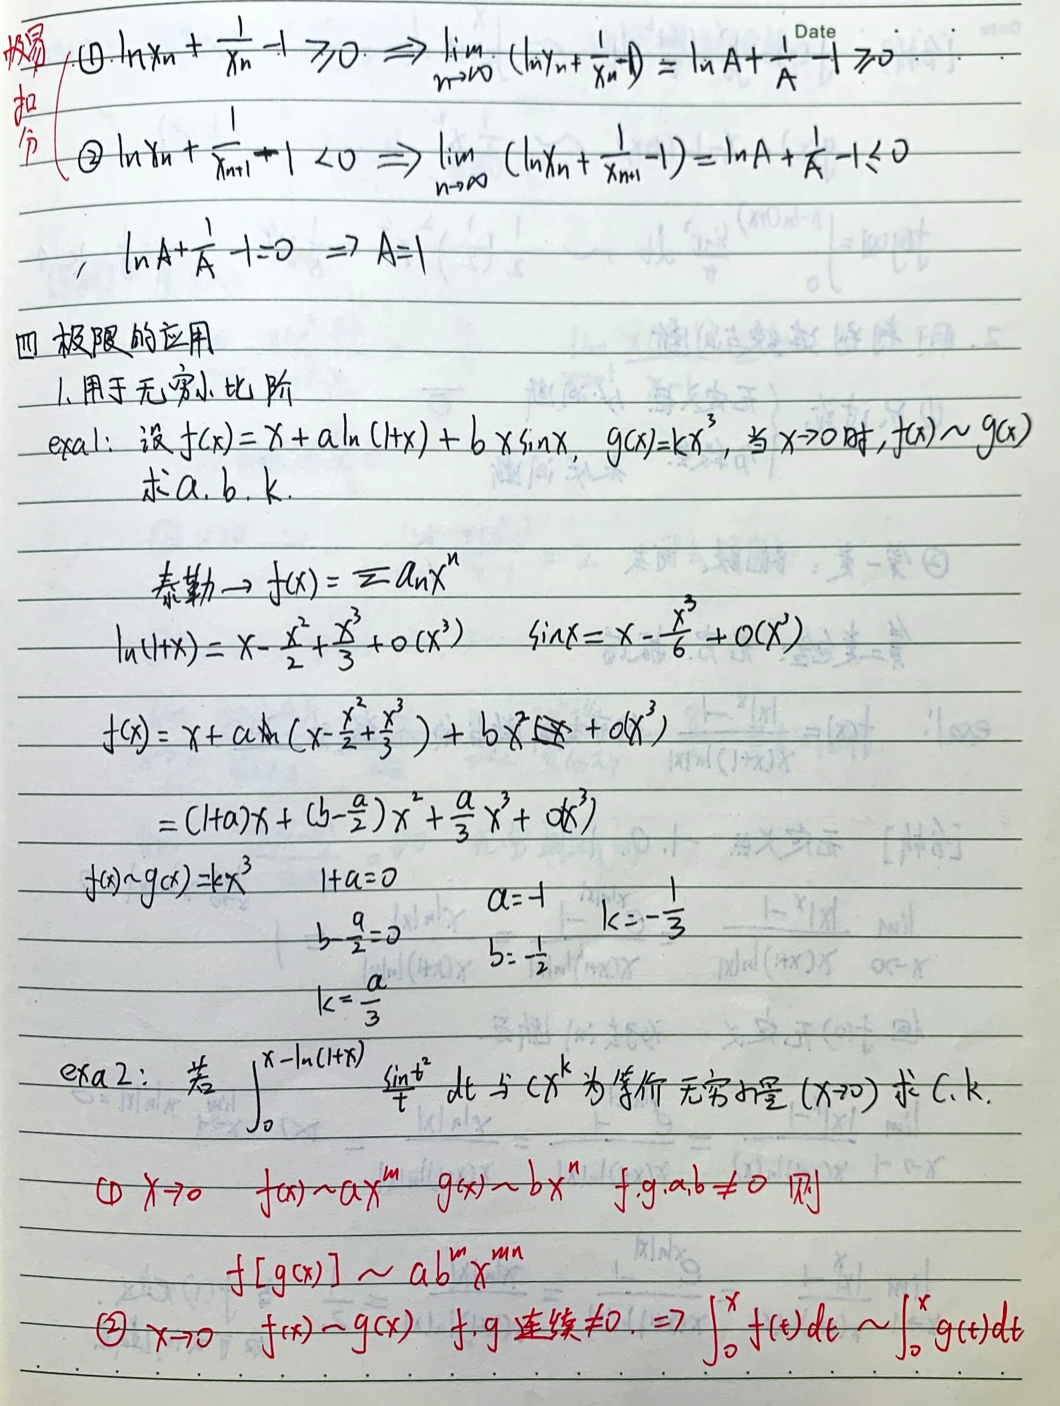 Date
极易扣分
① lnxn + 1/xn - 1 ≥ 0 ⇒ lim n→∞ (lnxn + 1/xn - 1) = lnA + 1/A - 1 ≥ 0
② lnxn + 1/xn+1 - 1 < 0 ⇒ lim n→∞ (lnxn + 1/xn+1 - 1) = lnA + 1/A - 1 ≤ 0
, lnA + 1/A - 1 = 0 ⇒ A = 1
四 极限的应用
1. 用于无穷小比阶
exa1: 设 f(x) = x + aln(1+x) + bxsinx, g(x) = kx³, 当 x→0 时, f(x) ~ g(x)
求 a. b. k.
泰勒 → f(x) = Σanxⁿ
ln(1+x) = x - x²/2 + x³/3 + o(x³) sinx = x - x³/6 + o(x³)
f(x) = x + a(x - x²/2 + x³/3) + bx² + o(x³)
= (1+a)x + (b - a/2)x² + a/3 x³ + o(x³)
f(x) ~ g(x) = kx³ 1+a=0 a=-1 k=-1/3
b - a/2 = 0 b=-1/2
k = a/3
exa2: 若 ∫₀^(x-ln(1+x)) sint²/t dt 与 Cx^k 为等价无穷小量 (x→0) 求 C. k.
① x→0 f(x) ~ ax^m g(x) ~ bx^n f.g.a.b ≠ 0 则
f[g(x)] ~ ab^m x^mn
② x→0 f(x) ~ g(x) f.g 连续 ≠ 0. ⇒ ∫₀^x f(t)dt ~ ∫₀^x g(t)dt